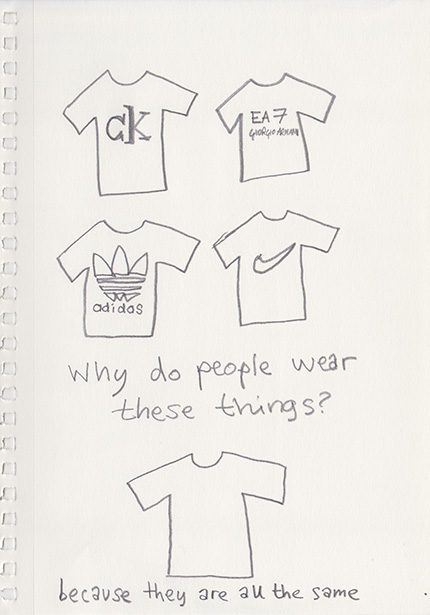 cK
EA7
GIORGIO ARMANI
adidas
Why do people wear
these things?
because they are all the same